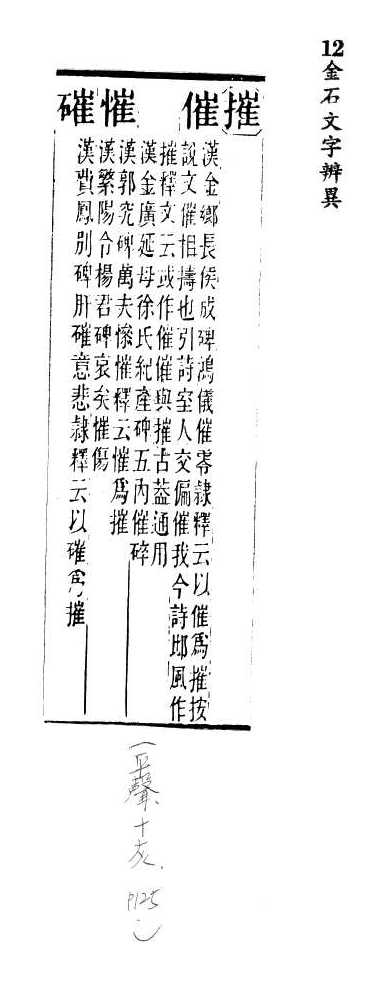 12金石文字辨異
摧
催
漢金鄉長侯成碑鴻儀催零隸釋云以催爲摧按
說文催相擣也引詩室人交偏催我今詩邶風作
摧釋文云或作催催與摧古葢通用
漢金廣延母徐氏紀產碑五內催碎
慛
漢郭究碑萬夫慘慛釋云慛爲摧
漢繁陽令楊君碑哀矣慛傷
磪
漢費鳳別碑肝磪意悲隸釋云以磪爲摧
(平聲.十灰.
P125)